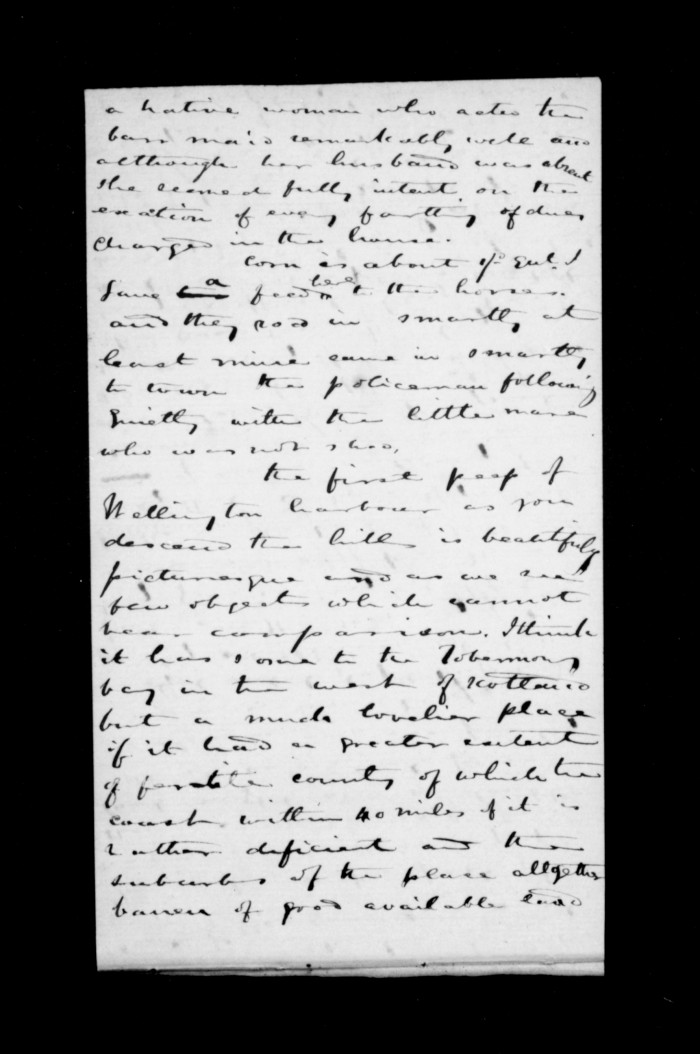 a native woman who acted the
barr maid remarkably well and
although her husband was absent
she seemed fully intent on the
exaction of every farthing of dues
charged in the house.
Corn is about
gave a feed here to the horses.
and they rode in smartly at
least mine came in smartly
to town the policeman following
quietly with the little mare
who was not shod,
the first peep of
Wellington harbour as you
descend the hills is beautifuly
picturesque and as we see
few objects which cannot
bear comparison. I think
it has some to the Tobermory
bay in the west of Scotland
but a much lovelier place
if it had a greater extent
of fertile county of which the
coast within 40 miles of it is
rather deficient and the
suburbs of the place allgether
barren of good available land